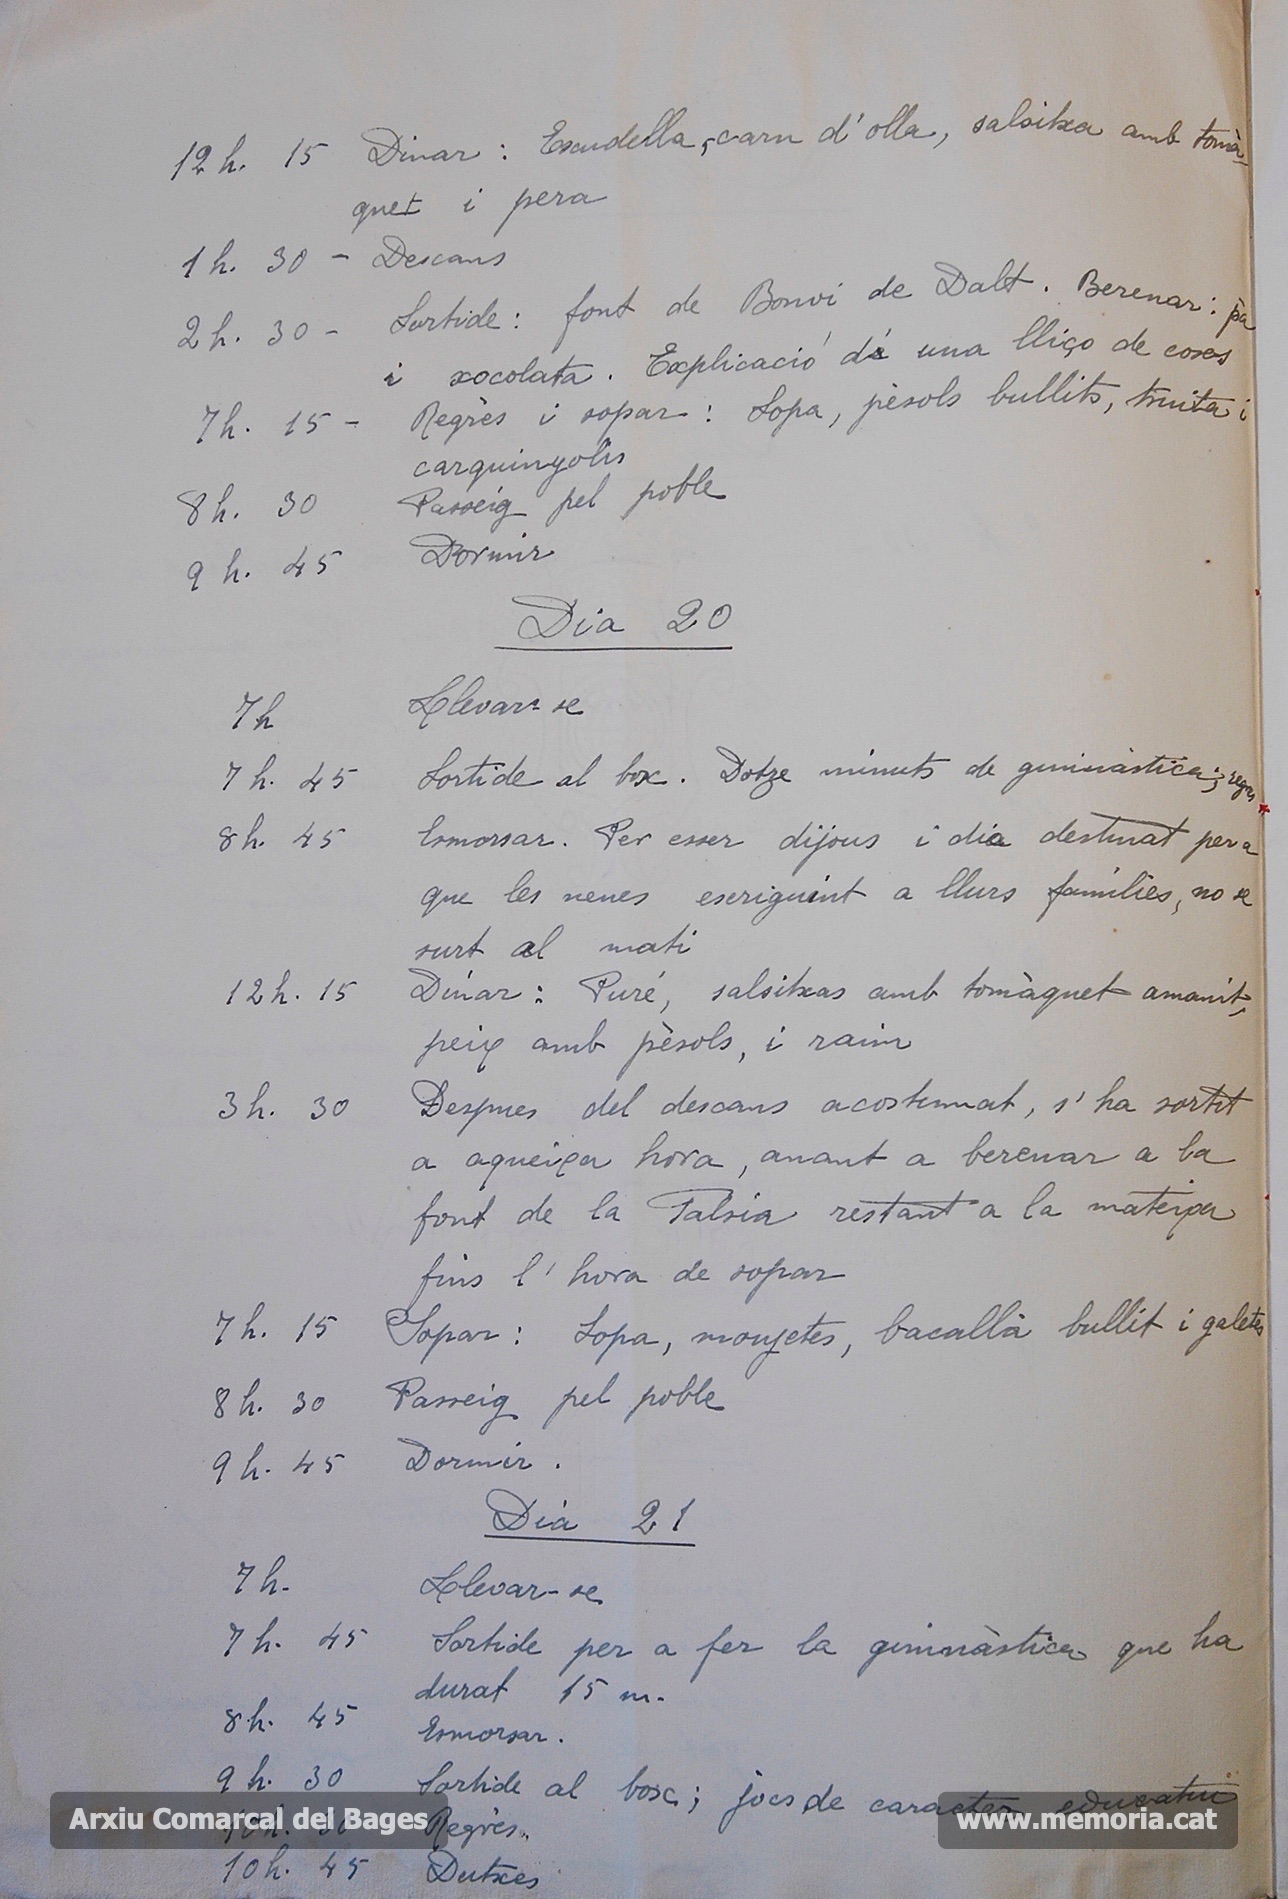 12 h. 15 Dinar: Escudella, carn d'olla, salsitxa amb tomà-
quet i pera
1 h. 30 - Descans
2 h. 30 - Sortide: font de Bonvi de Dalt. Berenar: pa
i xocolata. Explicació de una lliço de coses
7 h. 15 - Regrès i sopar: Sopa, pèsols bullits, truita i
carquinyolis
8 h. 30 Passeig pel poble
9 h. 45 Dormir
Dia 20
7 h Llevar-se
7 h. 45 Sortide al bosc. Dotze minuts de gimnàstica; regrés
8 h. 45 Esmorsar. Per esser dijous i dia destinat per a
que les nenes escriguint a llurs famílies, no se
surt al mati
12 h. 15 Dinar: Puré, salsitxas amb tomàquet amanit,
peix amb pèsols, i raim
3 h. 30 Despues del descans acostumat, s'ha sortit
a aqueixa hora, anant a berenar a la
font de la Talsia restant a la mateixa
fins l'hora de sopar
7 h. 15 Sopar: Sopa, monjetes, bacallà bullit i galetes
8 h. 30 Passeig pel poble
9 h. 45 Dormir.
Dia 21
7 h. Llevar-se
7 h. 45 Sortide per a fer la gimnàstica que ha
durat 15 m.
8 h. 45 Esmorsar.
9 h. 30 Sortide al bosc; jocs de caracter educatiu
10 h. 30 Regrès.
10 h. 45 Dutxes
Arxiu Comarcal del Bages
www.memoria.cat